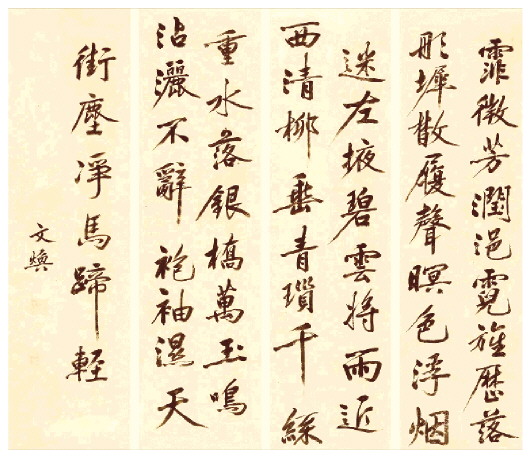 霏微芳潤浥霓旌歷落
彤墀散履聲暝色浮烟
迷左掖碧雲將雨近
西清柳垂青瑣千絲
重水落銀橋萬玉鳴
沾灑不辭袍袖濕天
街塵淨馬蹄輕
文煥